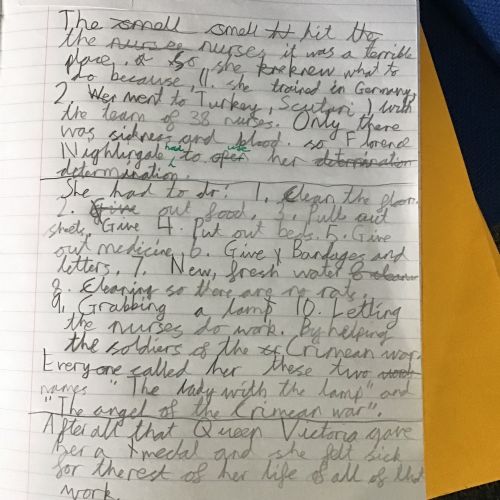 The small smell tt hit the
the nurses nurses it was a terrible
place, so she kne knew what to
do because, 1. she trained in Germany,
2. Wer ment to Turkey, Scutari) with
the team of 38 nurses. Only there
was sickness and blood. so Florence
Nightingale had to open use her determination
determination.
She had to do: 1. Clean the floor.
2. Give out food. 3. Pull out
sheets, Give 4. Put out beds. 5. Give
out medicine, 6. Give Bandages and
letters. 7. New, fresh water & clean
8. Cleaning so there are no rats,
9. Grabbing a lamp 10. Letting
the nurses do work. By helping
the soldiers of the Crimean war.
Everyone called her these two
names "The lady with the lamp" and
"The angel of the Crimean war".
After all that Queen Victoria gave
her a medal and she felt sick
for therest of her life of all of that
work.